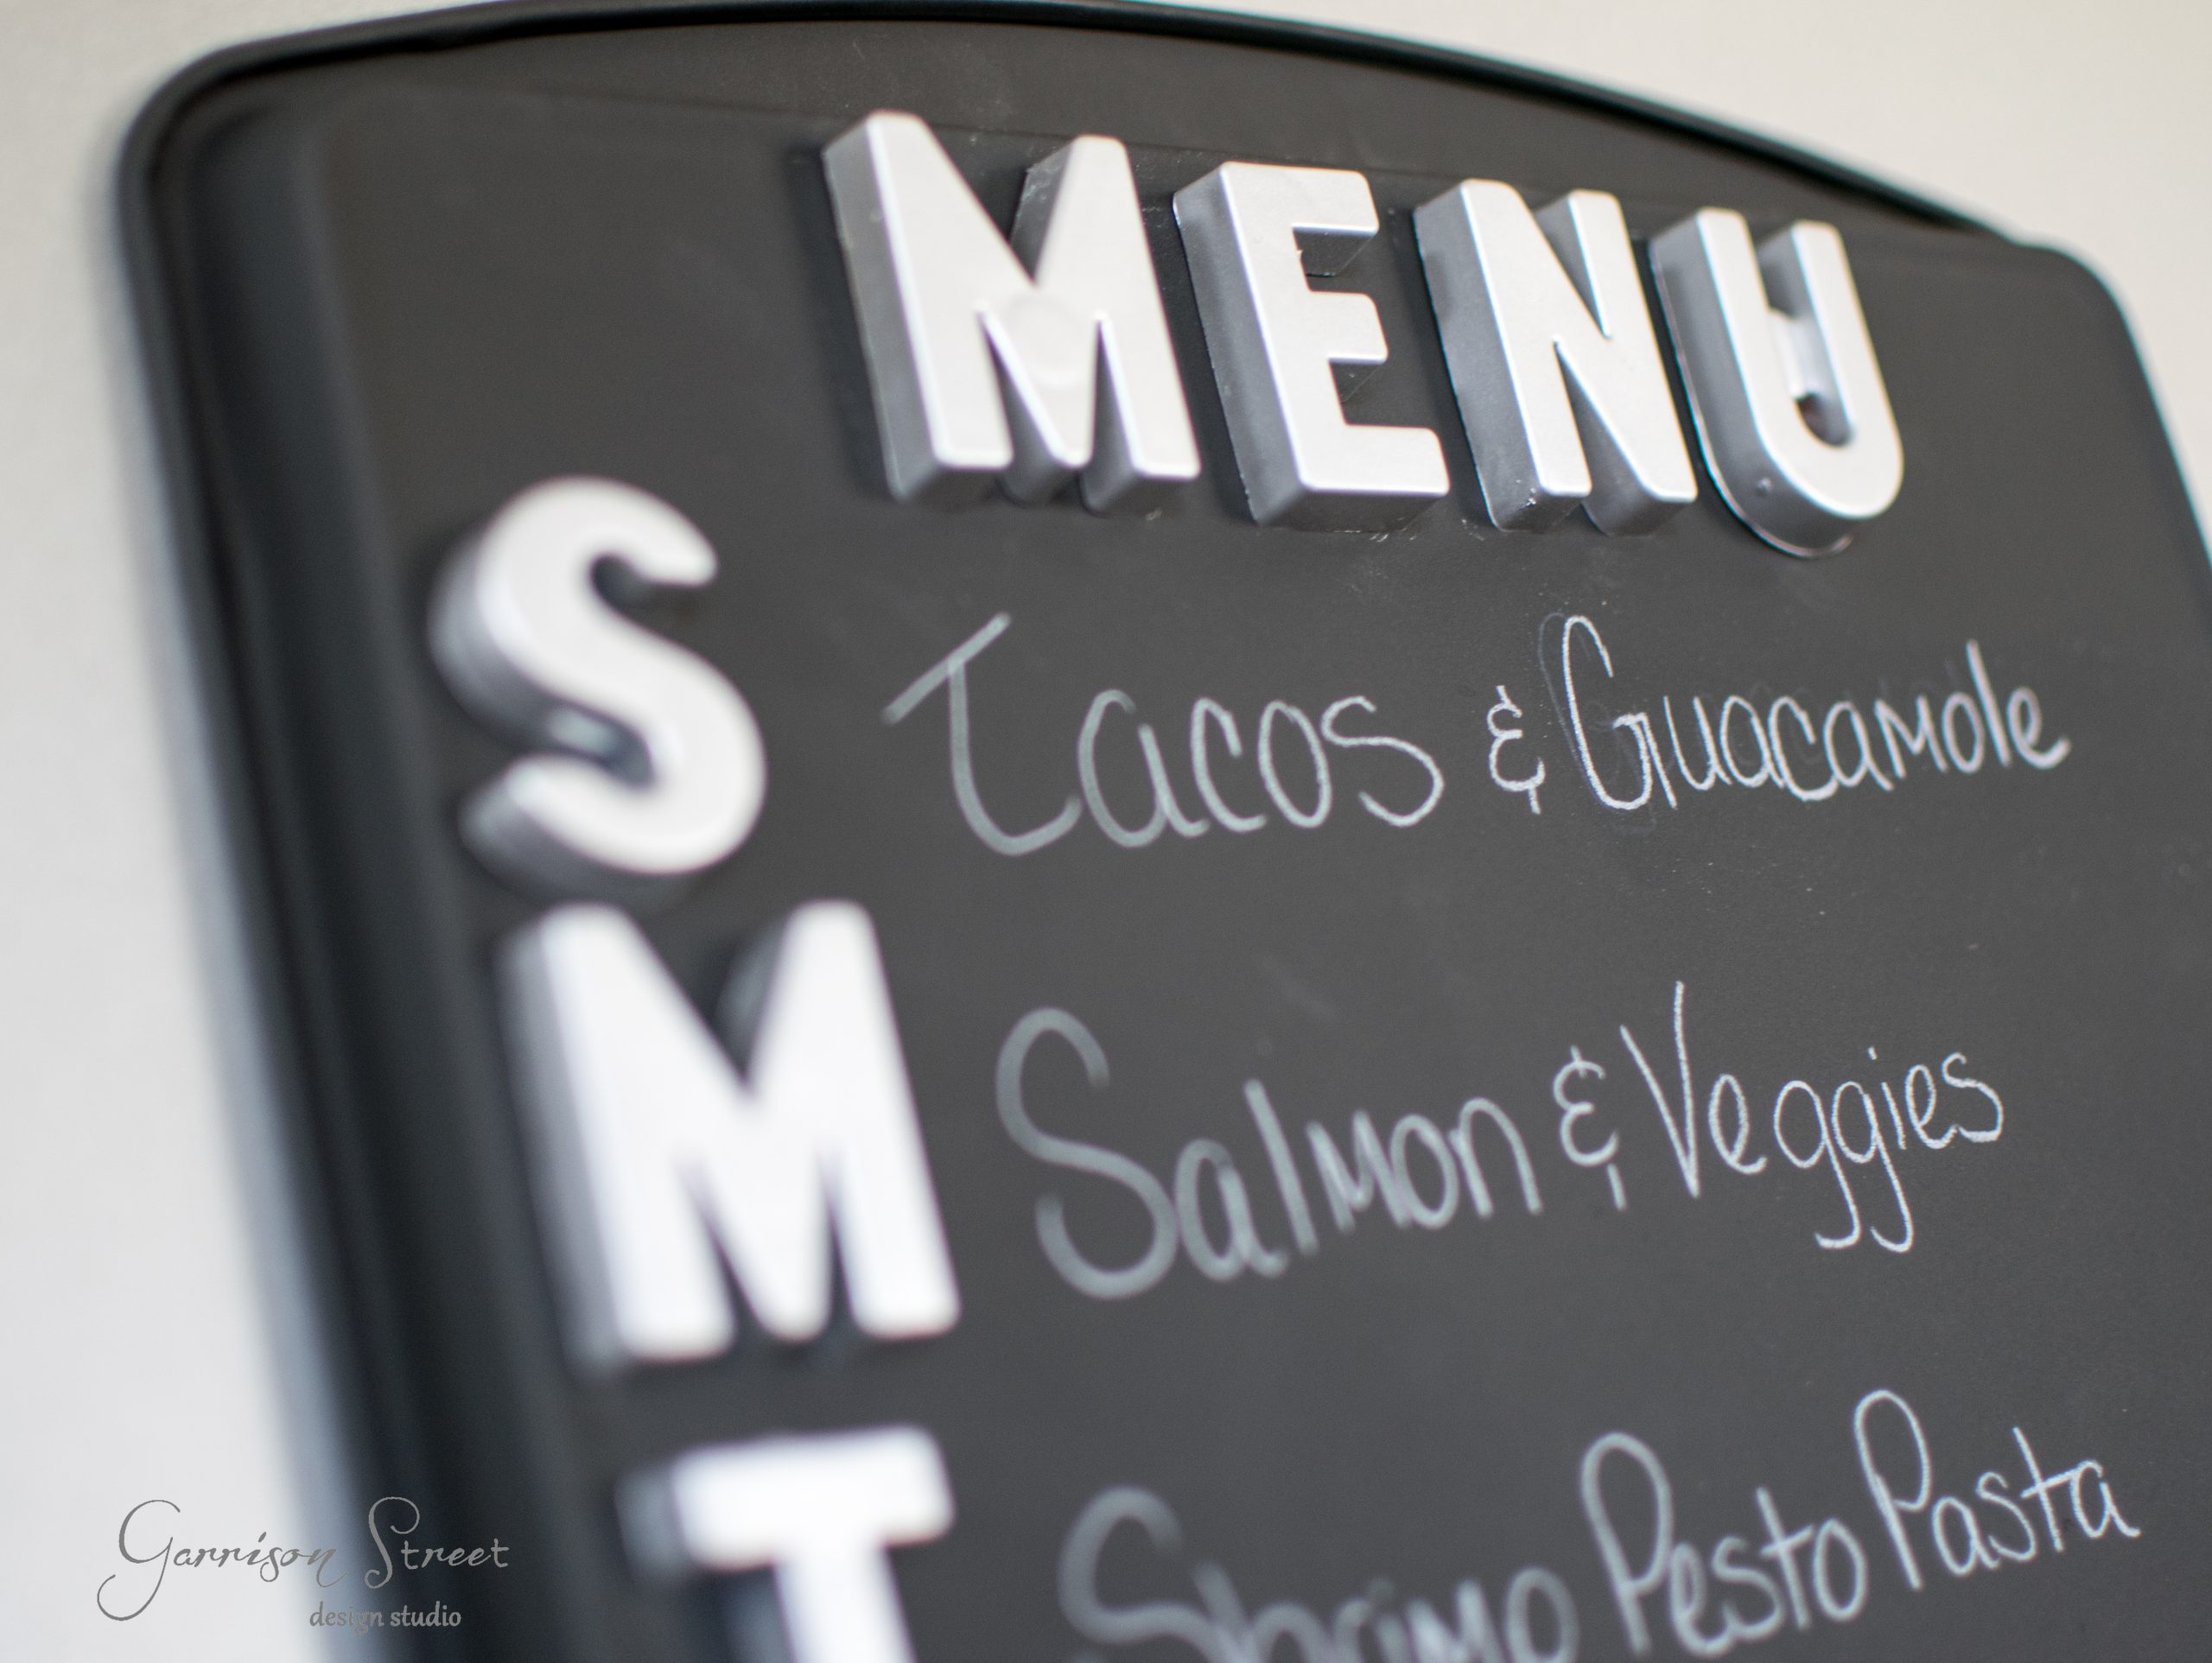 MENU
S Tacos & Guacamole
M Salmon & Veggies
T Shrimp Pesto Pasta
Garrison Street
design studio